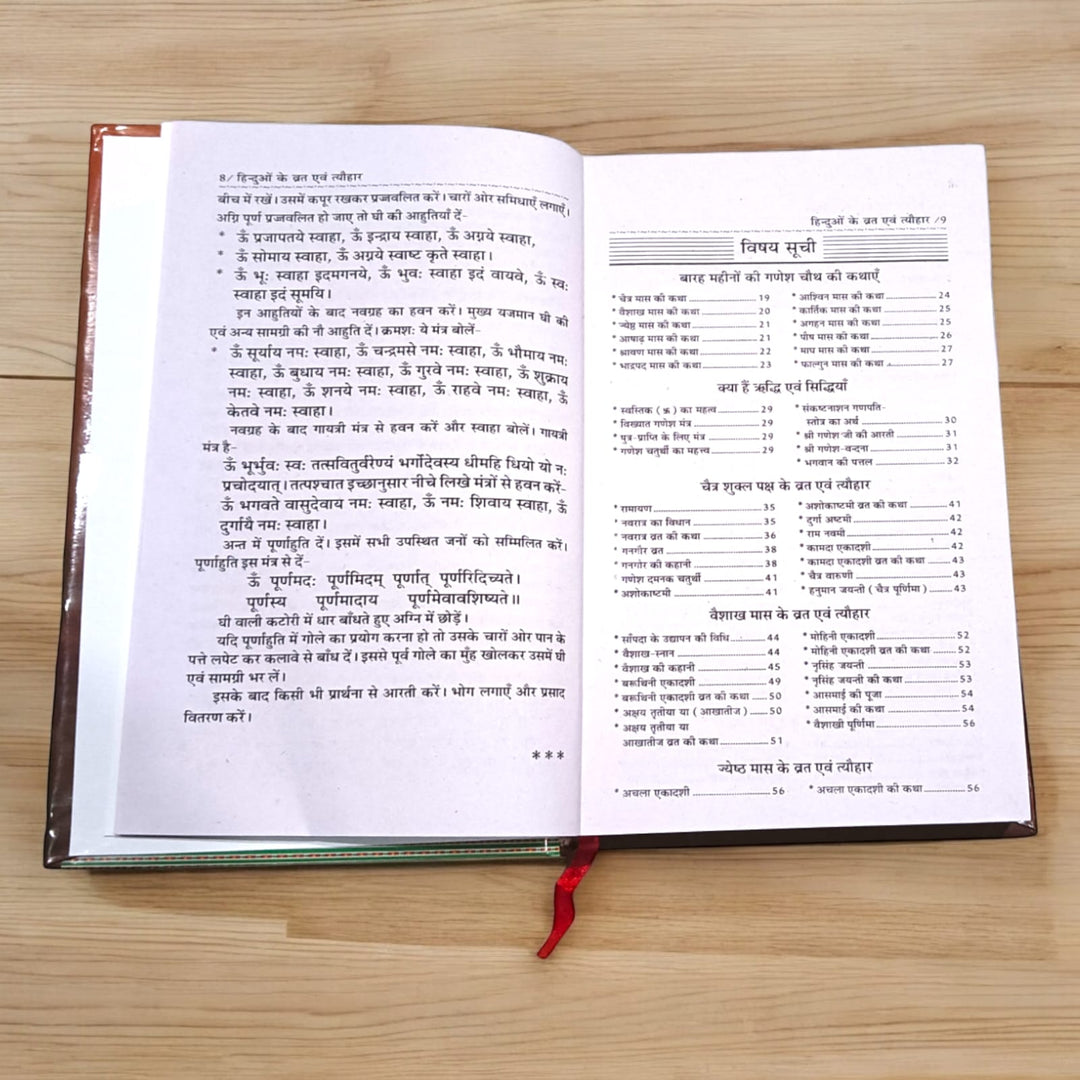 8/ हिन्दुओं के व्रत एवं त्यौहार
बीच में रखें। उसमें कपूर रखकर प्रज्जवलित करें। चारों ओर समिधाएँ लगाएँ।
अग्नि पूर्ण प्रज्जवलित हो जाए तो घी की आहुतियाँ दें-
* ऊँ प्रजापतये स्वाहा, ऊँ इन्द्राय स्वाहा, ऊँ अग्नये स्वाहा,
* ऊँ सोमाय स्वाहा, ऊँ अग्नये स्वाष्ट कृते स्वाहा।
* ऊँ भूः स्वाहा इदमगनये, ऊँ भुवः स्वाहा इदं वायवे, ऊँ स्वः
स्वाहा इदं सूमयि।
इन आहुतियों के बाद नवग्रह का हवन करें। मुख्य यजमान घी की
एवं अन्य सामग्री की नौ आहुति दें। क्रमशः ये मंत्र बोलें-
* ऊँ सूर्याय नमः स्वाहा, ऊँ चन्द्रमसे नमः स्वाहा, ऊँ भौमाय नमः
स्वाहा, ऊँ बुधाय नमः स्वाहा, ऊँ गुरवे नमः स्वाहा, ऊँ शुक्राय
नमः स्वाहा, ऊँ शनये नमः स्वाहा, ऊँ राहवे नमः स्वाहा, ऊँ
केतवे नमः स्वाहा।
नवग्रह के बाद गायत्री मंत्र से हवन करें और स्वाहा बोलें। गायत्री
मंत्र है-
ऊँ भूर्भुवः स्वः तत्सवितुर्वरेण्यं भर्गोदेवस्य धीमहि धियो यो नः
प्रचोदयात्। तत्पश्चात इच्छानुसार नीचे लिखे मंत्रों से हवन करें-
ऊँ भगवते वासुदेवाय नमः स्वाहा, ऊँ नमः शिवाय स्वाहा, ऊँ
दुर्गायै नमः स्वाहा।
अन्त में पूर्णाहुति दें। इसमें सभी उपस्थित जनों को सम्मिलित करें।
पूर्णाहुति इस मंत्र से दें-
ऊँ पूर्णमदः पूर्णमिदम् पूर्णात् पूर्णरिदिच्यते।
पूर्णस्य पूर्णमादाय पूर्णमेवावशिष्यते॥
घी वाली कटोरी में धार बाँधते हुए अग्नि में छोड़ें।
यदि पूर्णाहुति में गोले का प्रयोग करना हो तो उसके चारों ओर पान के
पत्ते लपेट कर कलावे से बाँध दें। इससे पूर्व गोले का मुँह खोलकर उसमें घी
एवं सामग्री भर लें।
इसके बाद किसी भी प्रार्थना से आरती करें। भोग लगाएँ और प्रसाद
वितरण करें।
***
हिन्दुओं के व्रत एवं त्यौहार /9
विषय सूची
बारह महीनों की गणेश चौथ की कथाएँ
* चैत्र मास की कथा 19
* वैशाख मास की कथा 20
* ज्येष्ठ मास की कथा 21
* आषाढ़ मास की कथा 21
* श्रावण मास की कथा 22
* भाद्रपद मास की कथा 23
* आश्विन मास की कथा 24
* कार्तिक मास की कथा 25
* अगहन मास की कथा 25
* पौष मास की कथा 26
* माघ मास की कथा 27
* फाल्गुन मास की कथा 27
क्या हैं ऋद्धि एवं सिद्धियाँ
* स्वस्तिक (卐) का महत्व 29
* विख्यात गणेश मंत्र 29
* पुत्र-प्राप्ति के लिए मंत्र 29
* गणेश चतुर्थी का महत्त्व 29
* संकष्टनाशन गणपति-
स्तोत्र का अर्थ 30
* श्री गणेश जी की आरती 31
* श्री गणेश-वन्दना 31
* भगवान की पत्तल 32
चैत्र शुक्ल पक्ष के व्रत एवं त्यौहार
* रामायण 35
* नवरात्र का विधान 35
* नवरात्र व्रत की कथा 36
* गनगौर व्रत 38
* गनगोर की कहानी 38
* गणेश दमनक चतुर्थी 41
* अशोकाष्टमी 41
* अशोकाष्टमी व्रत की कथा 41
* दुर्गा अष्टमी 42
* राम नवमी 42
* कामदा एकादशी 42
* कामदा एकादशी व्रत की कथा 43
* चैत्र वारुणी 43
* हनुमान जयन्ती ( चैत्र पूर्णिमा ) 43
वैशाख मास के व्रत एवं त्यौहार
* साँपदा के उद्यापन की विधि 44
* वैशाख-स्नान 44
* वैशाख की कहानी 45
* बरूथिनी एकादशी 49
* बरूथिनी एकादशी व्रत की कथा 50
* अक्षय तृतीया या ( आखातीज ) 50
* अक्षय तृतीया या
आखातीज व्रत की कथा 51
* मोहिनी एकादशी 52
* मोहिनी एकादशी व्रत की कथा 52
* नृसिंह जयन्ती 53
* नृसिंह जयन्ती की कथा 53
* आसमाई की पूजा 54
* आसमाई की कथा 54
* वैशाखी पूर्णिमा 56
ज्येष्ठ मास के व्रत एवं त्यौहार
* अचला एकादशी 56
* अचला एकादशी की कथा 56